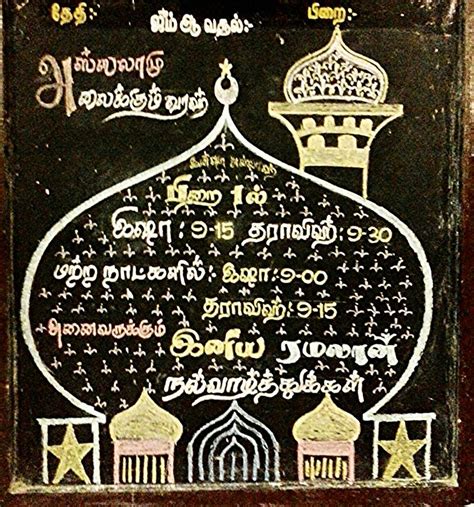 தேதி:- ஜீம்ஆ வதல்:- பிறை:-
அஸ்ஸலாமு
அலைக்கும் வரஹ்
இன்ஷா அல்லாஹ்
பிறை 1ல்
இஷா: 9-15 தராவிஹ்: 9-30
மற்ற நாட்களில்: இஷா: 9-00
தராவிஹ்: 9-15
அனைவருக்கும்
இனிய ரமலான்
நல்வாழ்த்துக்கள்